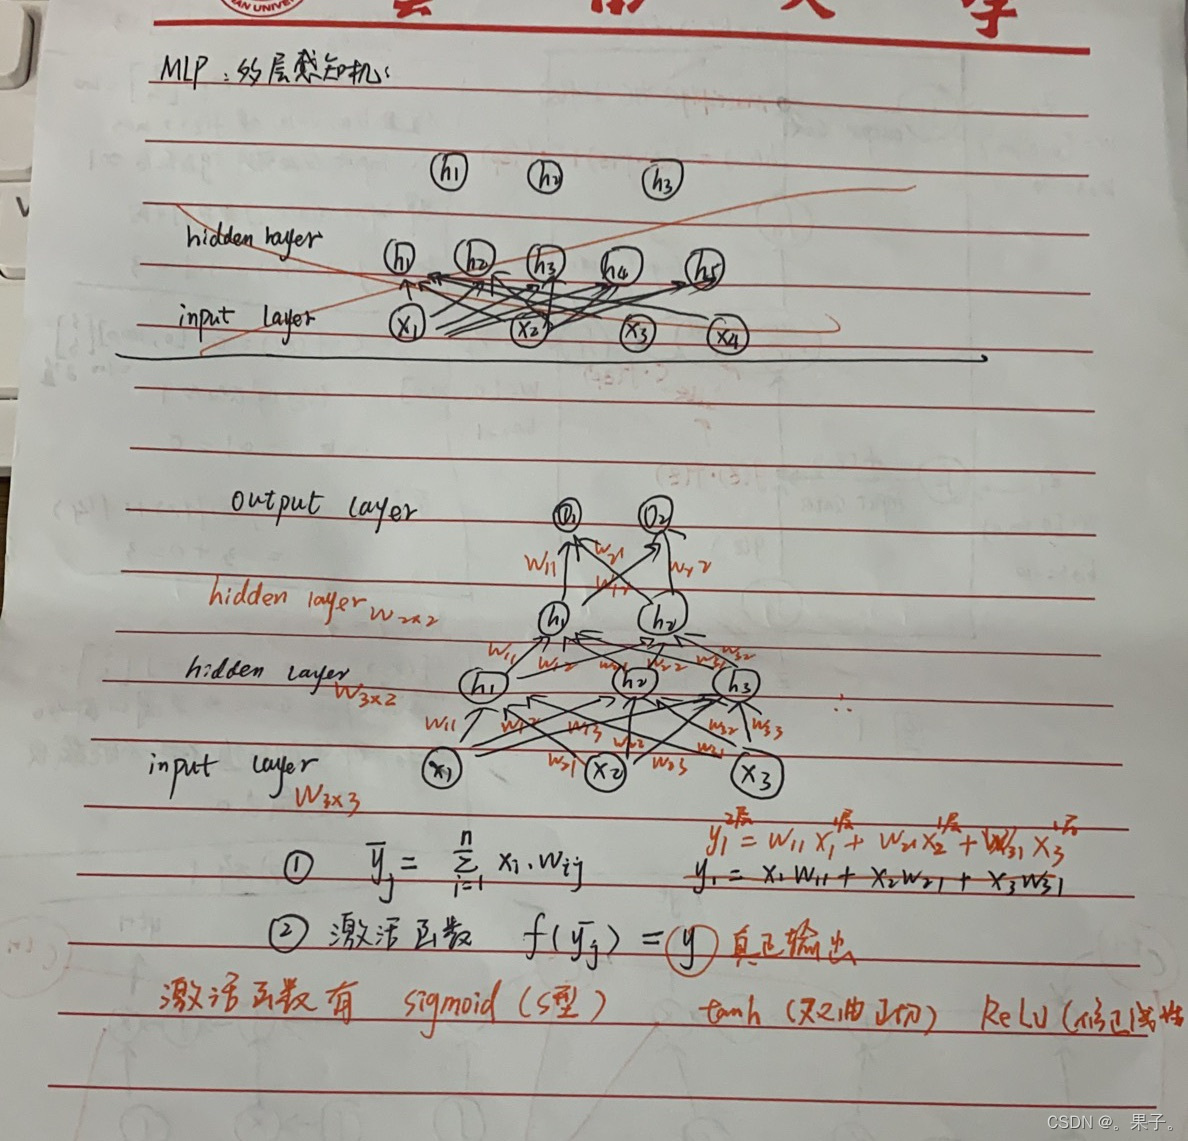 MLP:多层感知机:
h1 h2 h3
hidden layer h1 h2 h3 h4 h5
input layer x1 x2 x3 x4
output layer O1 O2
W11 W21 W12 W22
hidden layer W2×2 h1 h2
W11 W12 W21 W22 W31 W32
hidden layer W3×2 h1 h2 h3
W11 W12 W13 W22 W32 W33
W21 W23 W31
input layer W3×3 x1 x2 x3
2层 1层 1层 1层
y1 = W11 x1 + W21 x2 + W31 x3
① ȳj = n∑i=1 xi · wij y1 = x1 W11 + x2 W21 + x3 W31
② 激活函数 f(ȳj) = y 真正输出
激活函数有 sigmoid (S型) tanh (双曲正切) ReLU (修正线性
CSDN @。果子。